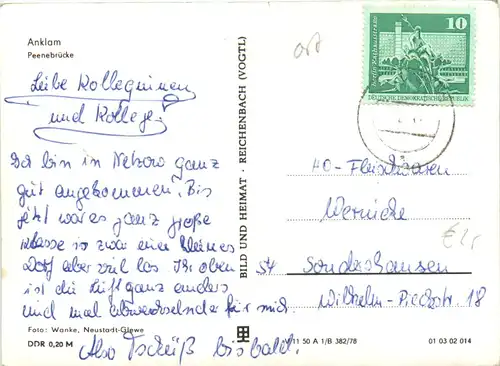 Anklam
Peenebrücke
Liebe Kolleginnen
und Kollege!
Da bin in Netzow ganz
gut angekommen. Bis
jetzt war es ganz große
klasse is zwar ein kleines
Dorf aber viel los Ihr oben
ist die Luft ganz anders
und mal abwechselnder für mich
Also Tscheiß bis bald.
Foto: Wanke, Neustadt-Glewe
DDR 0,20 M
BILD UND HEIMAT · REICHENBACH (VOGTL)
ort
10
Berlin Rathausstraße
DEUTSCHE DEMOKRATISCHE REPUBLIK
HO-Fleischwaren
Wernicke
€1,-
54 Sondershausen
Wilhelm-Pieckstr 18
V 11 50 A 1/B 382/78
01 03 02 014